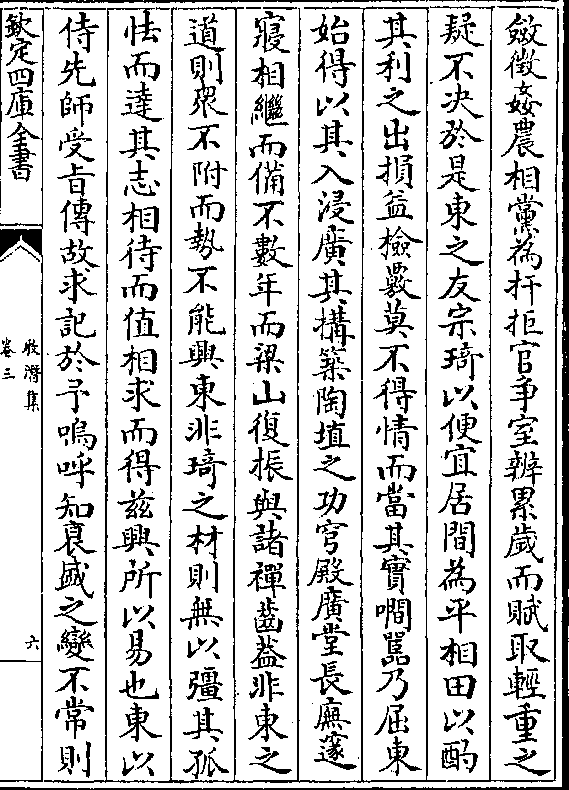 斂徵姦農相黨為扞拒官爭室辨累歲而賦取輕重之
疑不决於是東之友宗琦以便宜居間為平相田以酌
其利之出損益檢覈莫不得情而當其實嚪嚚乃屈東
始得以其入浸廣其搆築陶埴之功穹殿廣堂長廡邃
寢相繼而備不數年而梁山復振與諸禪齒葢非東之
道則衆不附而勢不能興東非琦之材則無以彊其孤
怯而達其志相待而值相求而得兹興所以易也東以
侍先師受旨傳故求記於予嗚呼知衰盛之變不常則
欽定四庫全書
牧潛集
卷三
六